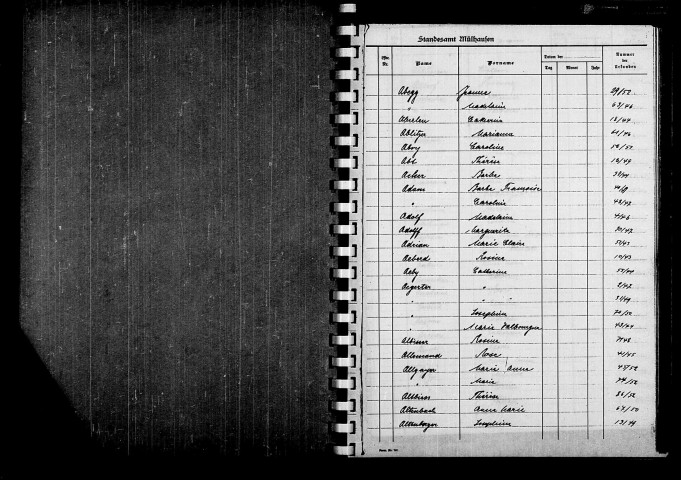 Standesamt Mülhausen
Lfde. Nr. Name Vorname Datum der Tag Monat Jahr Nummer der Urkunden
Abegg Jeanne 29/52
" Madelain 63/46
Aberlen Catherin 15/44
Ablitzer Marianna
Abry Caroline
Abt Thérèse 12/47
Acker Barbe
Adam Barbe Françoise
" Caroline 42/47
Adolf Madelaine 4/46
Adolff Marguerite 30/47
Adrian Marie Claire 51/43
Aeberd Rosine 10/43
Aeby Catherine 55/44
Aegerter " 2/42
" " 31/44
" Josephine 70/50
" Marie 43/44
Rosine
Allemand Rose 41/45
Allgayer Marie Anne 47/52
" Marie 74/52
Thérèse 56/52
Altenbach Anne Marie 67/50
Altenberger Josephine 13/44